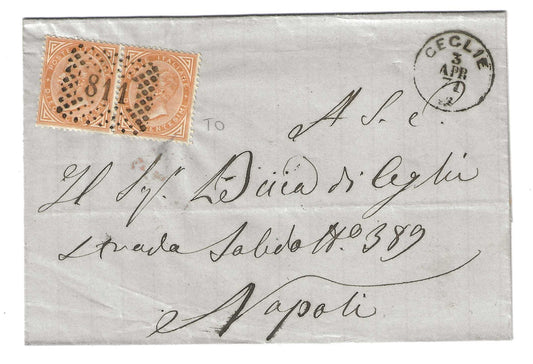 811
CEGLIE
3
APR
71
TO
A S. E.
Il Sigr. Duca di Ceglie
strada Salido No. 389
Napoli